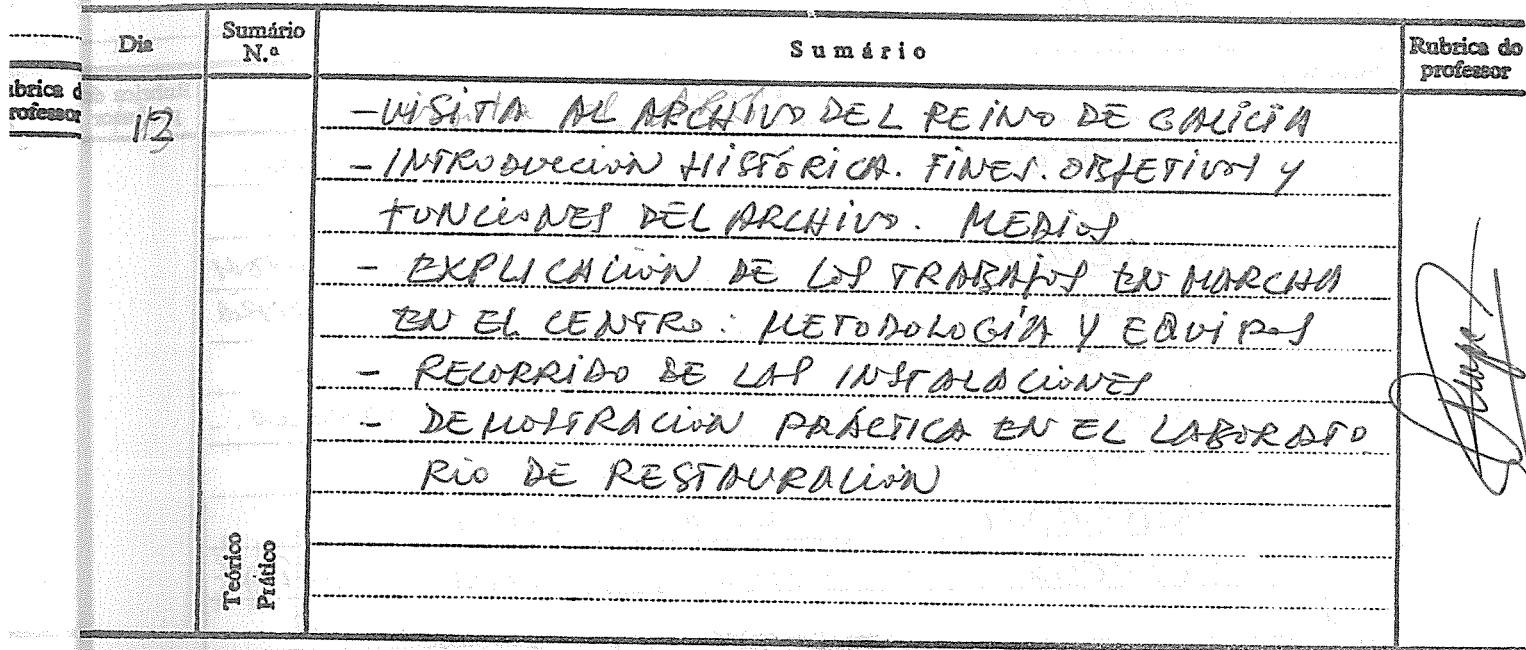 Dia
Sumário
N.º
Sumário
Rubrica do
professor
ubrica d
rofessor
1/3
- VISITA AL ARCHIVO DEL REINO DE GALICIA
- INTRODUCCION HISTÓRICA. FINES. OBJETIVOS Y
FUNCIONES DEL ARCHIVO. MEDIOS.
- EXPLICACION DE LOS TRABAJOS EN MARCHA
EN EL CENTRO: METODOLOGÍA Y EQUIPOS
- RECORRIDO DE LAS INSTALACIONES
- DEMOSTRACION PRÁCTICA EN EL LABORATO
RIO DE RESTAURACION
Teórico
Prático